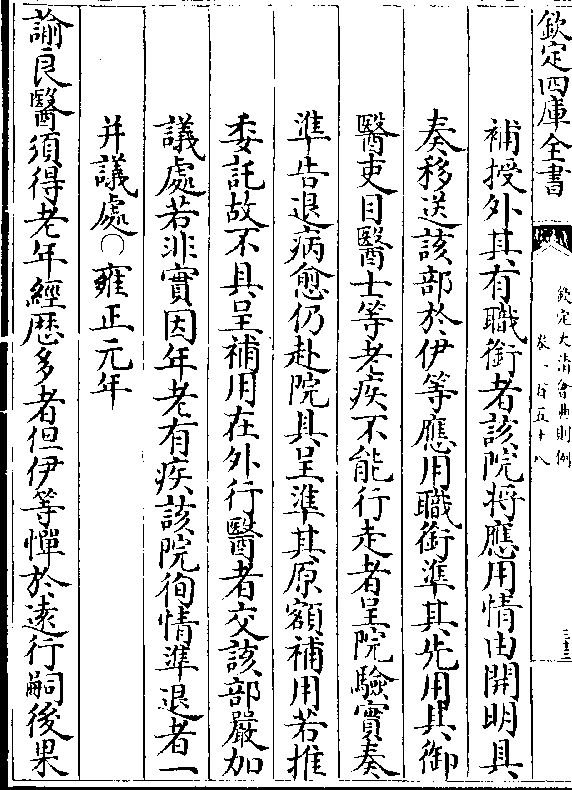 欽定四庫全書
欽定大清會典則例
卷一百五十八
三十三
補授外其有職銜者該院將應用情由開明具
奏移送該部於伊等應用職銜準其先用其御
醫吏目醫士等老疾不能行走者呈院驗實奏
準告退病愈仍赴院具呈準其原額補用若推
委託故不具呈補用在外行醫者交該部嚴加
議處若非實因年老有疾該院徇情準退者一
并議處○雍正元年
諭良醫須得老年經歴多者但伊等憚於逺行嗣後果